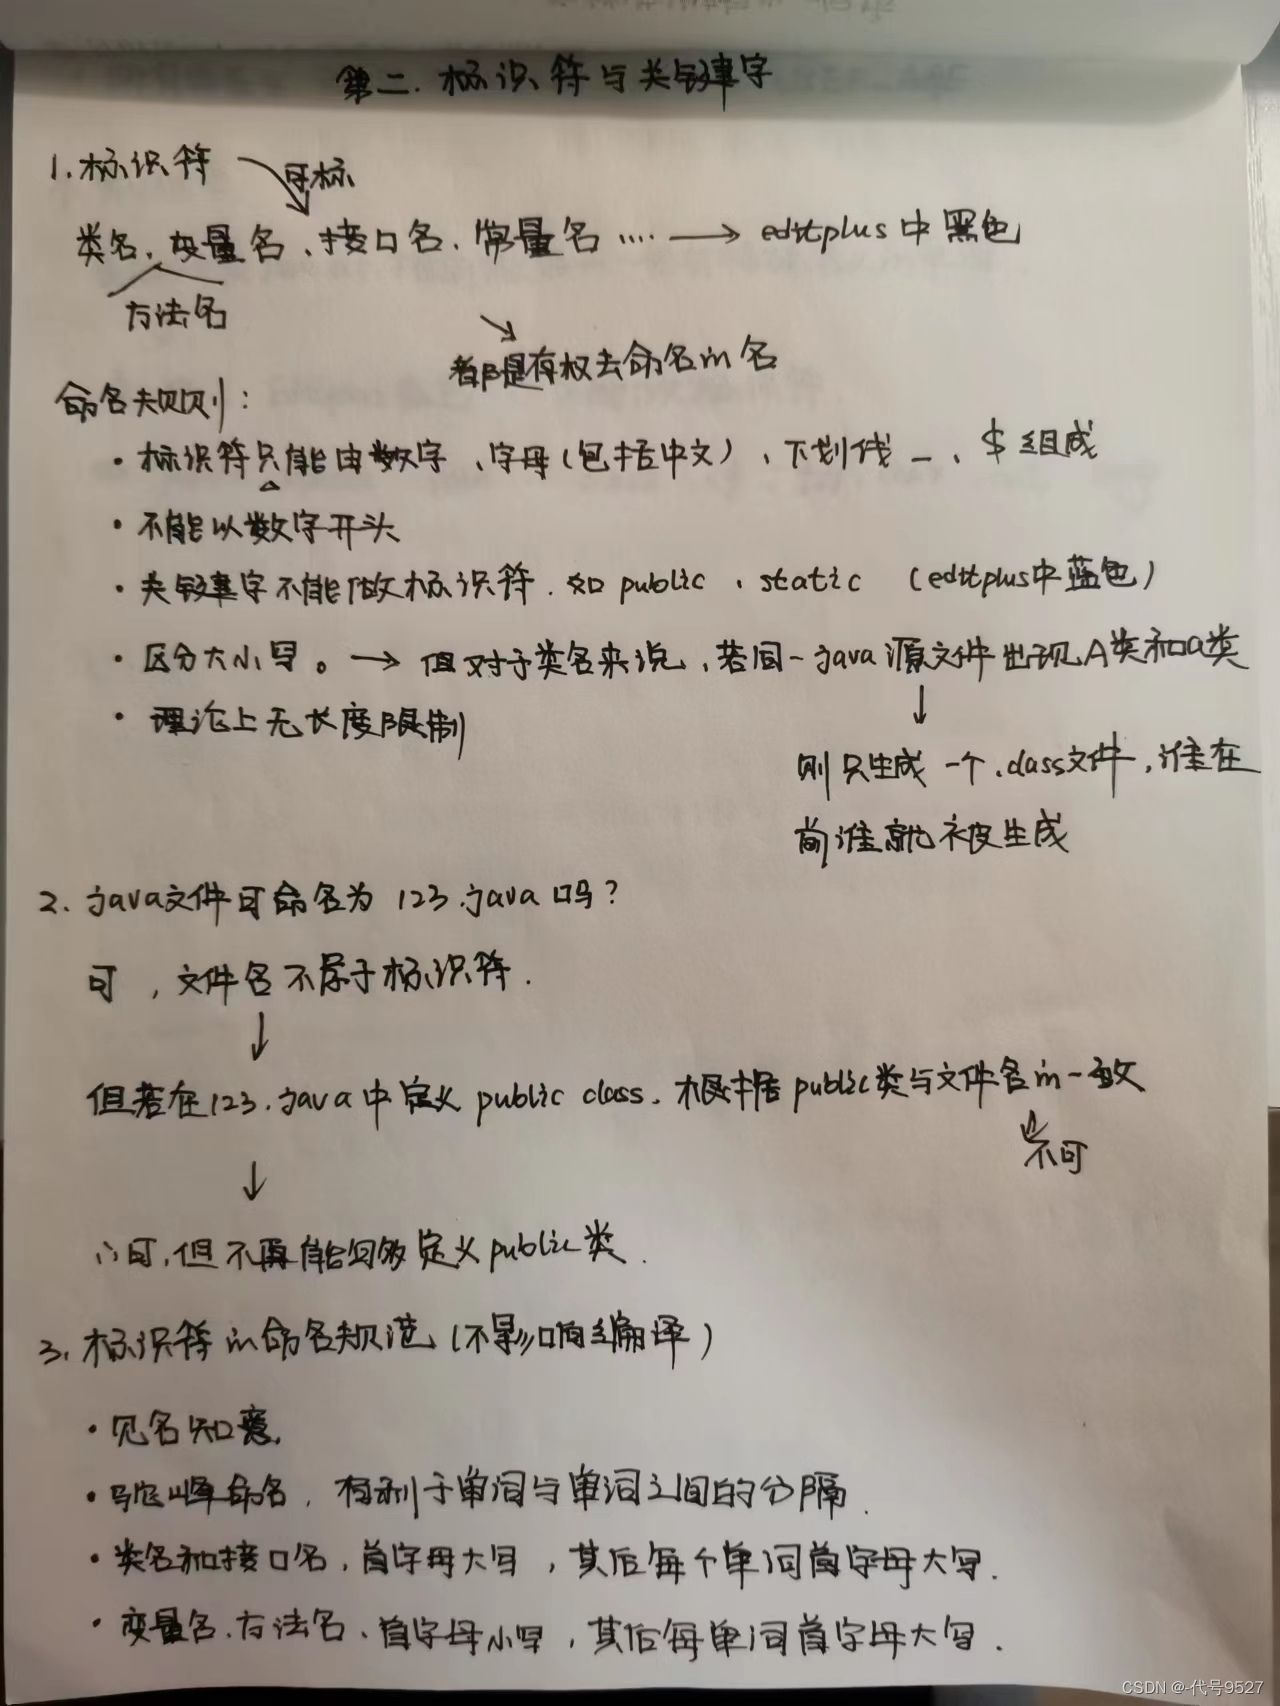 第二.标识符与关键字
1.标识符 可标
类名、变量名、接口名、常量名 .... → editplus中黑色
方法名
都是有权去命名的名
命名规则:
· 标识符只能由数字、字母(包括中文)、下划线_、$组成
· 不能以数字开头
· 关键字不能做标识符.如public、static (editplus中蓝色)
· 区分大小写。→ 但对于类名来说,若同一java源文件出现A类和a类
· 理论上无长度限制
↓
则只生成一个.class文件,谁在
前谁就被生成
2. java文件可命名为 123.java吗?
可,文件名不属于标识符.
↓
但若在123.java中定义public class.根据public类与文件名的一致
不可
↓
∴可,但不再能够定义public类.
3.标识符的命名规范(不影响编译)
· 见名知意.
· 驼峰命名,有利于单词与单词之间的分隔.
· 类名和接口名,首字母大写,其后每个单词首字母大写.
· 变量名、方法名、首字母小写,其后每单词首字母大写.
CSDN @-代号9527